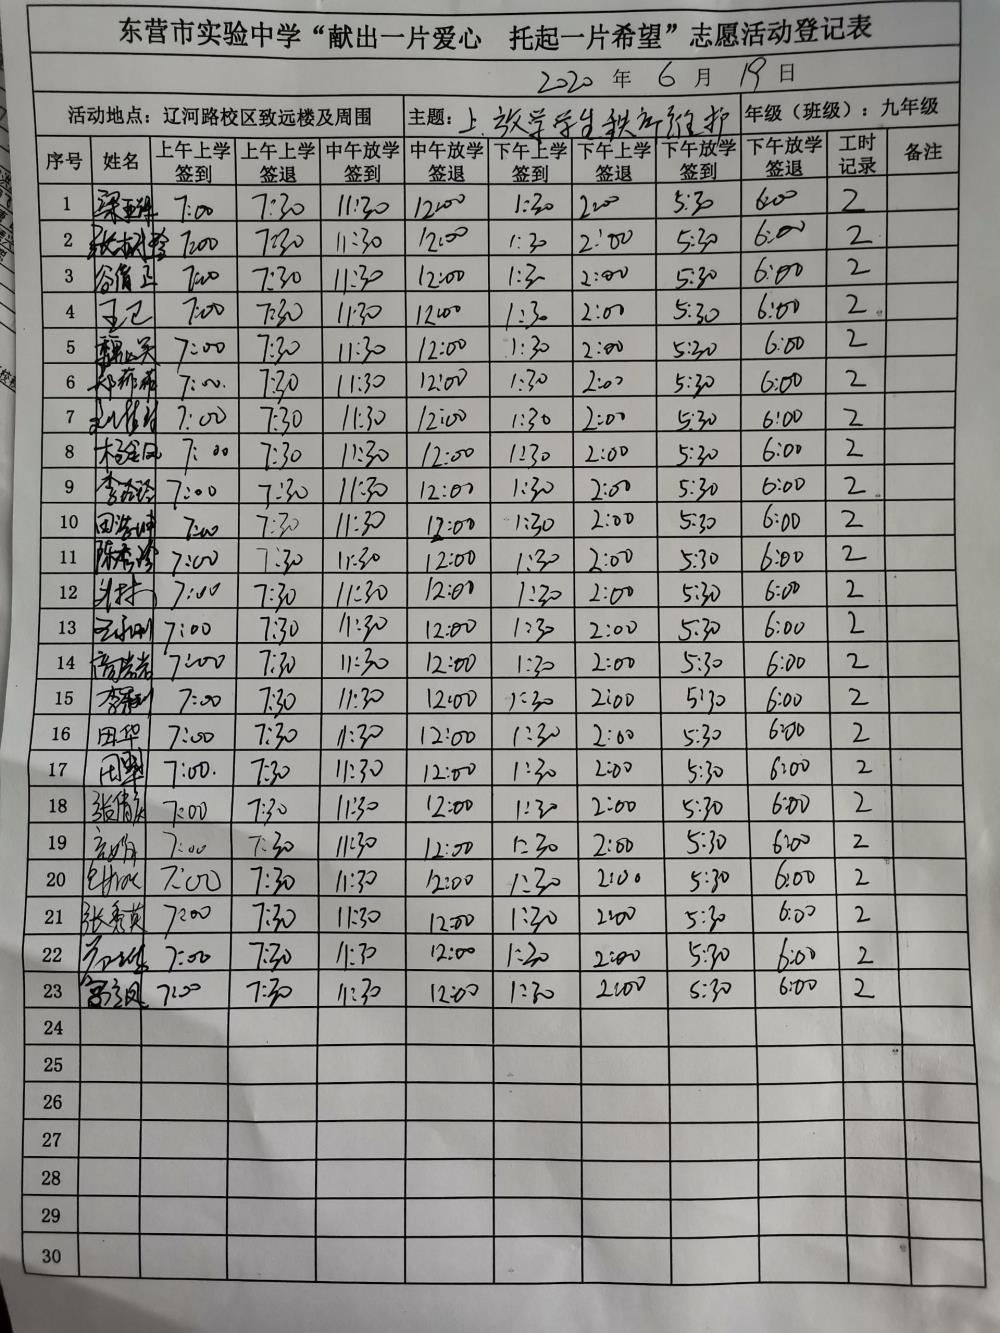 东营市实验中学“献出一片爱心 托起一片希望”志愿活动登记表
2020 年 6 月 19 日
活动地点：辽河路校区致远楼及周围 主题：上.放学学生秩序维护 年级（班级）：九年级
序号 姓名 上午上学签到 上午上学签退 中午放学签到 中午放学签退 下午上学签到 下午上学签退 下午放学签到 下午放学签退 工时记录 备注
1 7:00 7:30 11:30 12:00 1:30 2:00 5:30 6:00 2
2 7:00 7:30 11:30 12:00 1:30 2:00 5:30 6:00 2
3 谷倩正 7:00 7:30 11:30 12:00 1:30 2:00 5:30 6:00 2
4 王卫 7:00 7:30 11:30 12:00 1:30 2:00 5:30 6:00 2
5 7:00 7:30 11:30 12:00 1:30 2:00 5:30 6:00 2
6 7:00. 7:30 11:30 12:00 1:30 2:00 5:30 6:00 2
7 7:00 7:30 11:30 12:00 1:30 2:00 5:30 6:00 2
8 7:00 7:30 11:30 12:00 1:30 2:00 5:30 6:00 2
9 7:00 7:30 11:30 12:00 1:30 2:00 5:30 6:00 2
10 7:00 7:30 11:30 12:00 1:30 2:00 5:30 6:00 2
11 陈秀珍 7:00 7:30 11:30 12:00 1:30 2:00 5:30 6:00 2
12 7:00 7:30 11:30 12:00 1:30 2:00 5:30 6:00 2
13 7:00 7:30 11:30 12:00 1:30 2:00 5:30 6:00 2
14 7:00 7:30 11:30 12:00 1:30 2:00 5:30 6:00 2
15 7:00 7:30 11:30 12:00 1:30 2:00 5:30 6:00 2
16 田华 7:00 7:30 11:30 12:00 1:30 2:00 5:30 6:00 2
17 7:00. 7:30 11:30 12:00 1:30 2:00 5:30 6:00 2
18 7:00 7:30 11:30 12:00 1:30 2:00 5:30 6:00 2
19 7:00 7:30 11:30 12:00 1:30 2:00 5:30 6:00 2
20 7:00 7:30 11:30 12:00 1:30 2:00 5:30 6:00 2
21 张秀英 7:00 7:30 11:30 12:00 1:30 2:00 5:30 6:00 2
22 7:00 7:30 11:30 12:00 1:30 2:00 5:30 6:00 2
23 7:00 7:30 11:30 12:00 1:30 2:00 5:30 6:00 2
24
25
26
27
28
29
30